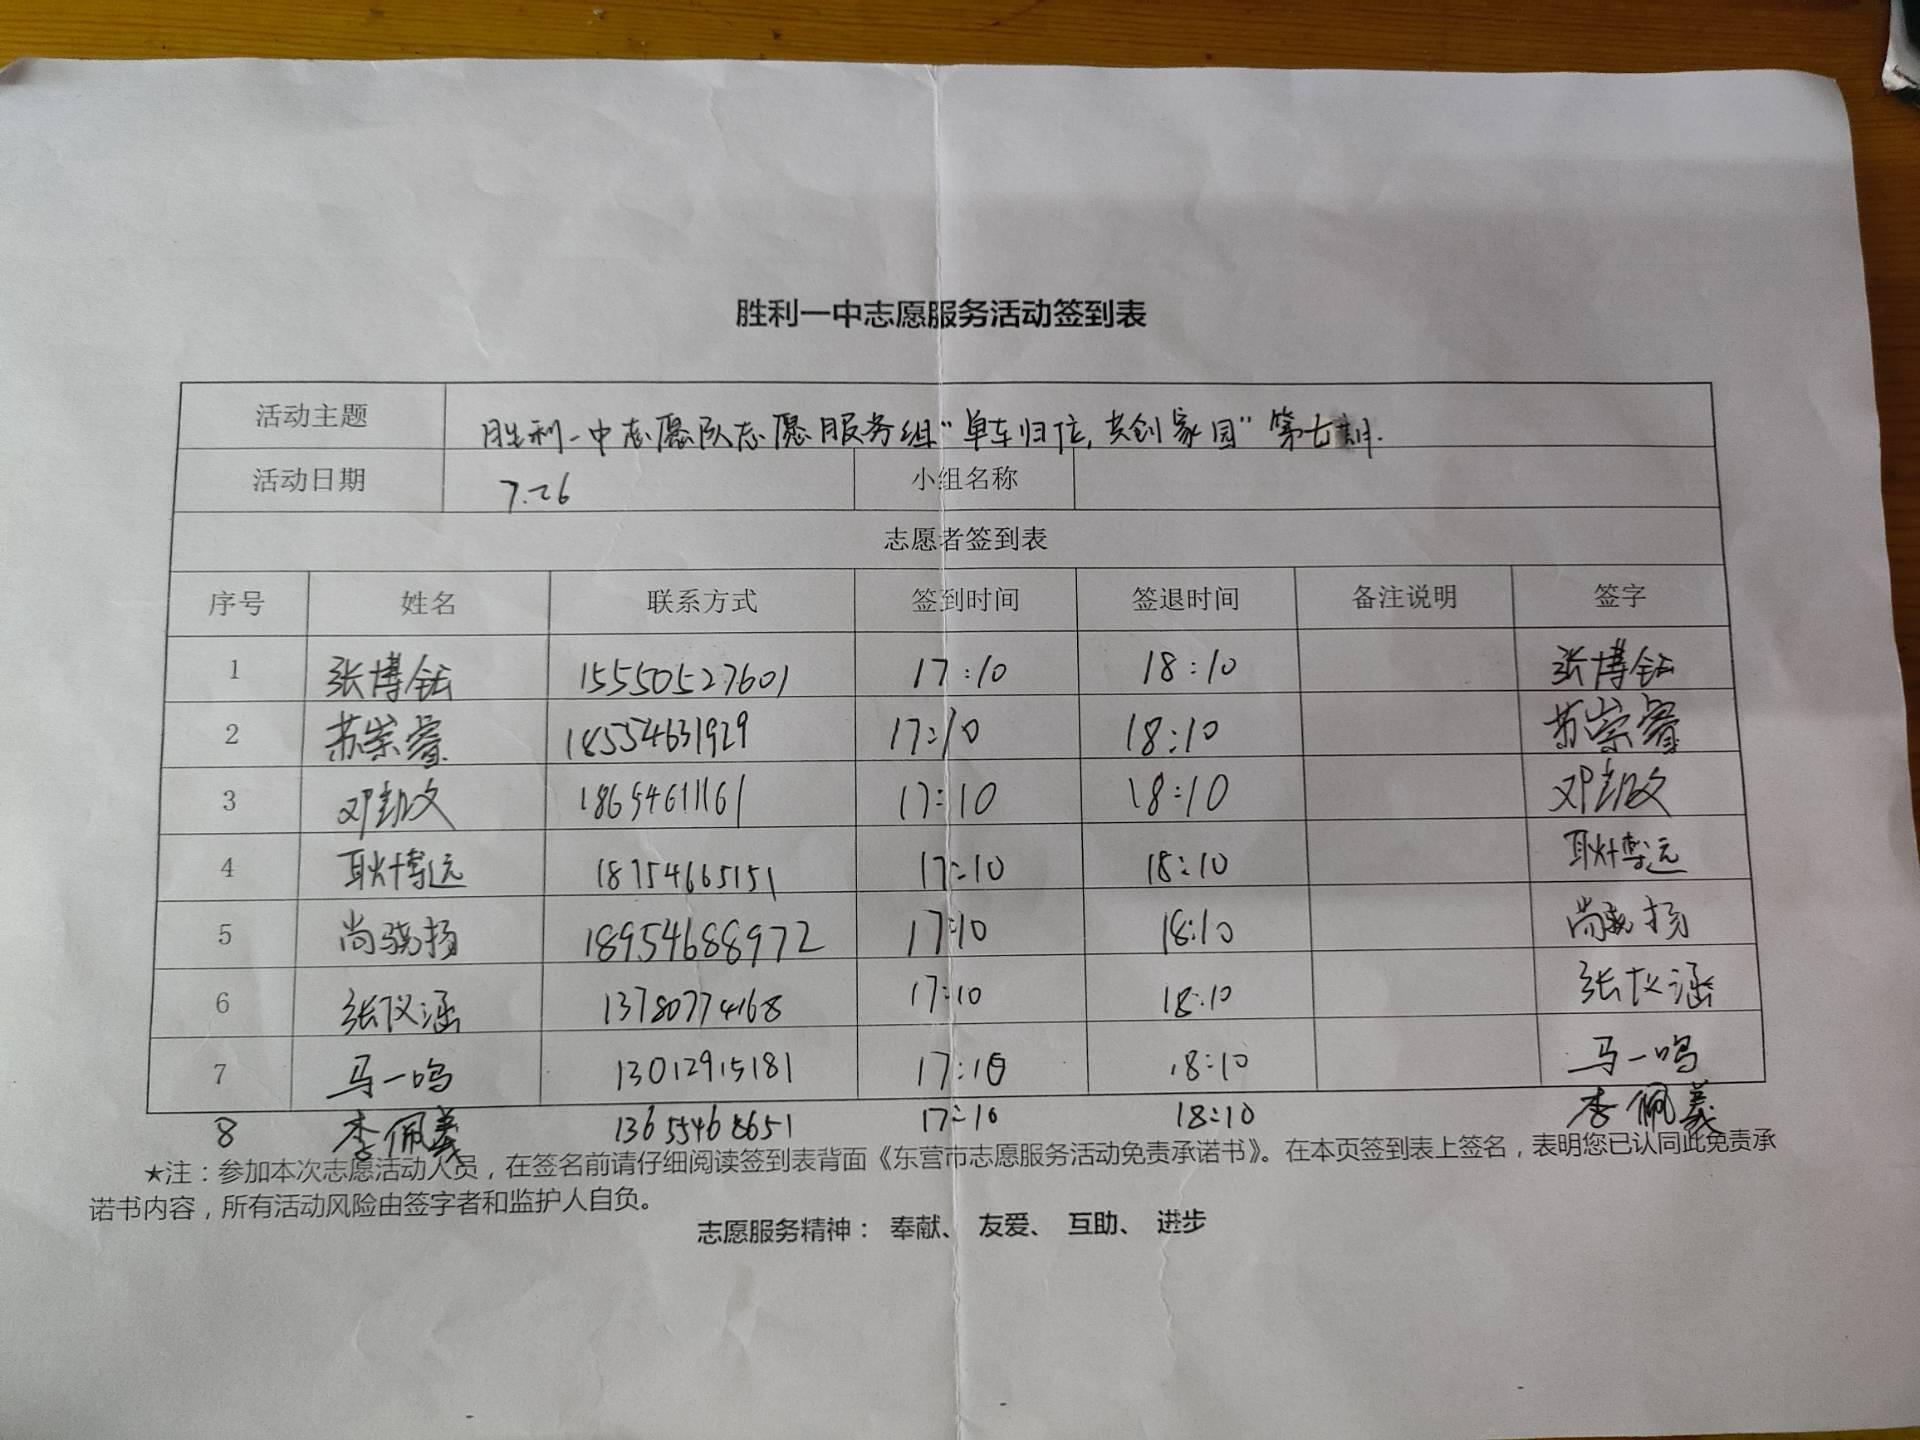 胜利一中志愿服务活动签到表
活动主题 胜利一中志愿队志愿服务组“单车归位,共创家园”第七期.
活动日期 7.26 小组名称
志愿者签到表
序号 姓名 联系方式 签到时间 签退时间 备注说明 签字
1 张博钰 15550527601 17:10 18:10 张博钰
2 苏崇睿 18554631929 17:10 18:10 苏崇睿
3 邓凯文 18654611161 17:10 18:10 邓凯文
4 耿博远 18754665151 17:10 18:10 耿博远
5 尚骁扬 18954688972 17:10 18:10 尚骁扬
6 张仪涵 13780774168 17:10 18:10 张仪涵
7 马一鸣 13012915181 17:10 18:10 马一鸣
8 李佩義 13655468651 17:10 18:10 李佩義
★注：参加本次志愿活动人员，在签名前请仔细阅读签到表背面《东营市志愿服务活动免责承诺书》。在本页签到表上签名，表明您已认同此免责承
诺书内容，所有活动风险由签字者和监护人自负。
志愿服务精神： 奉献、 友爱、 互助、 进步